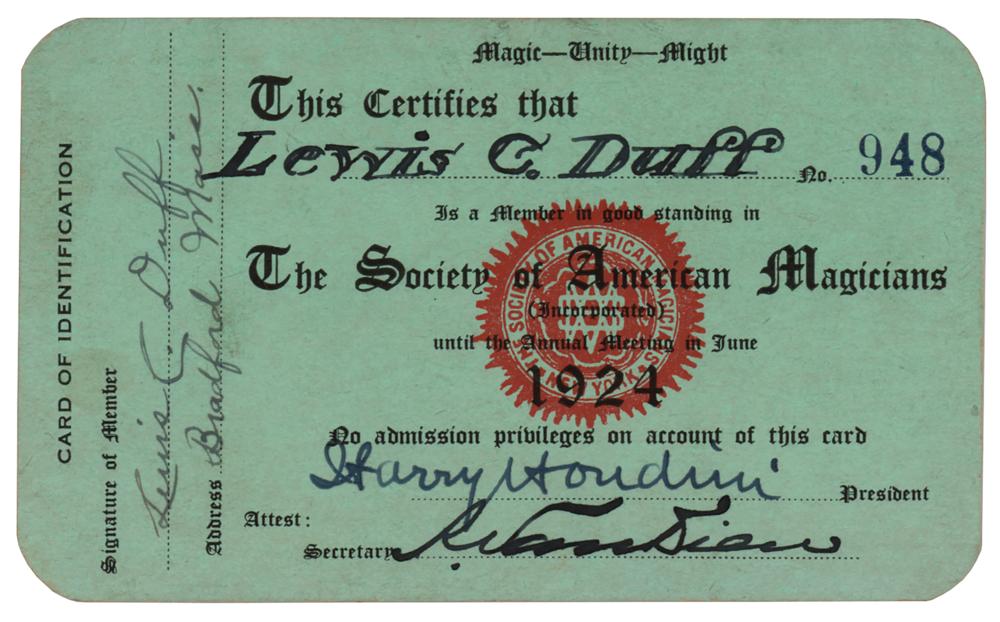 Magic—Unity—Might
This Certifies that
Lewis C. Duff No. 948
Is a Member in good standing in
The Society of American Magicians
(Incorporated)
until the Annual Meeting in June
1924
No admission privileges on account of this card
Harry Houdini President
Attest:
Secretary
CARD OF IDENTIFICATION
Signature of Member Lewis C Duff
Address Bradford Mass.
SOCIETY OF AMERICAN MAGICIANS
NEW YORK